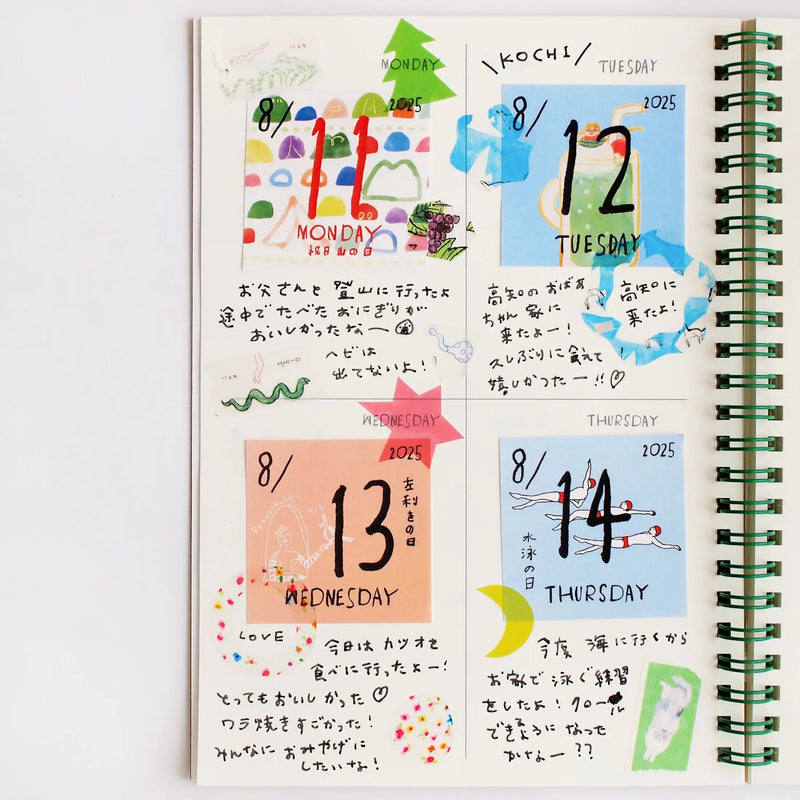 MONDAY
8/
2025
11
MONDAY
祝日 山の日
お父さんと 登山に行ったよ
途中でたべたおにぎりが
おいしかったなー
ヘビは
出てないよ!
\KOCHI/
TUESDAY
8/
2025
12
TUESDAY
高知のおばあ
ちゃん家に
来たよー!
久しぶりに会えて
嬉しかったー!!♡
高知に
来たよ!
WEDNESDAY
8/
2025
13
左利きの日
WEDNESDAY
LOVE
今日は カツオを
食べに行ったよー!
とってもおいしかった♡
ワラ焼きすごかった!
みんなに おみやげに
したいな!
THURSDAY
8/
2025
14
水泳の日
THURSDAY
今度 海に行くから
お家で 泳ぐ練習
をしたよ! クロール
できるようになった
かなー??